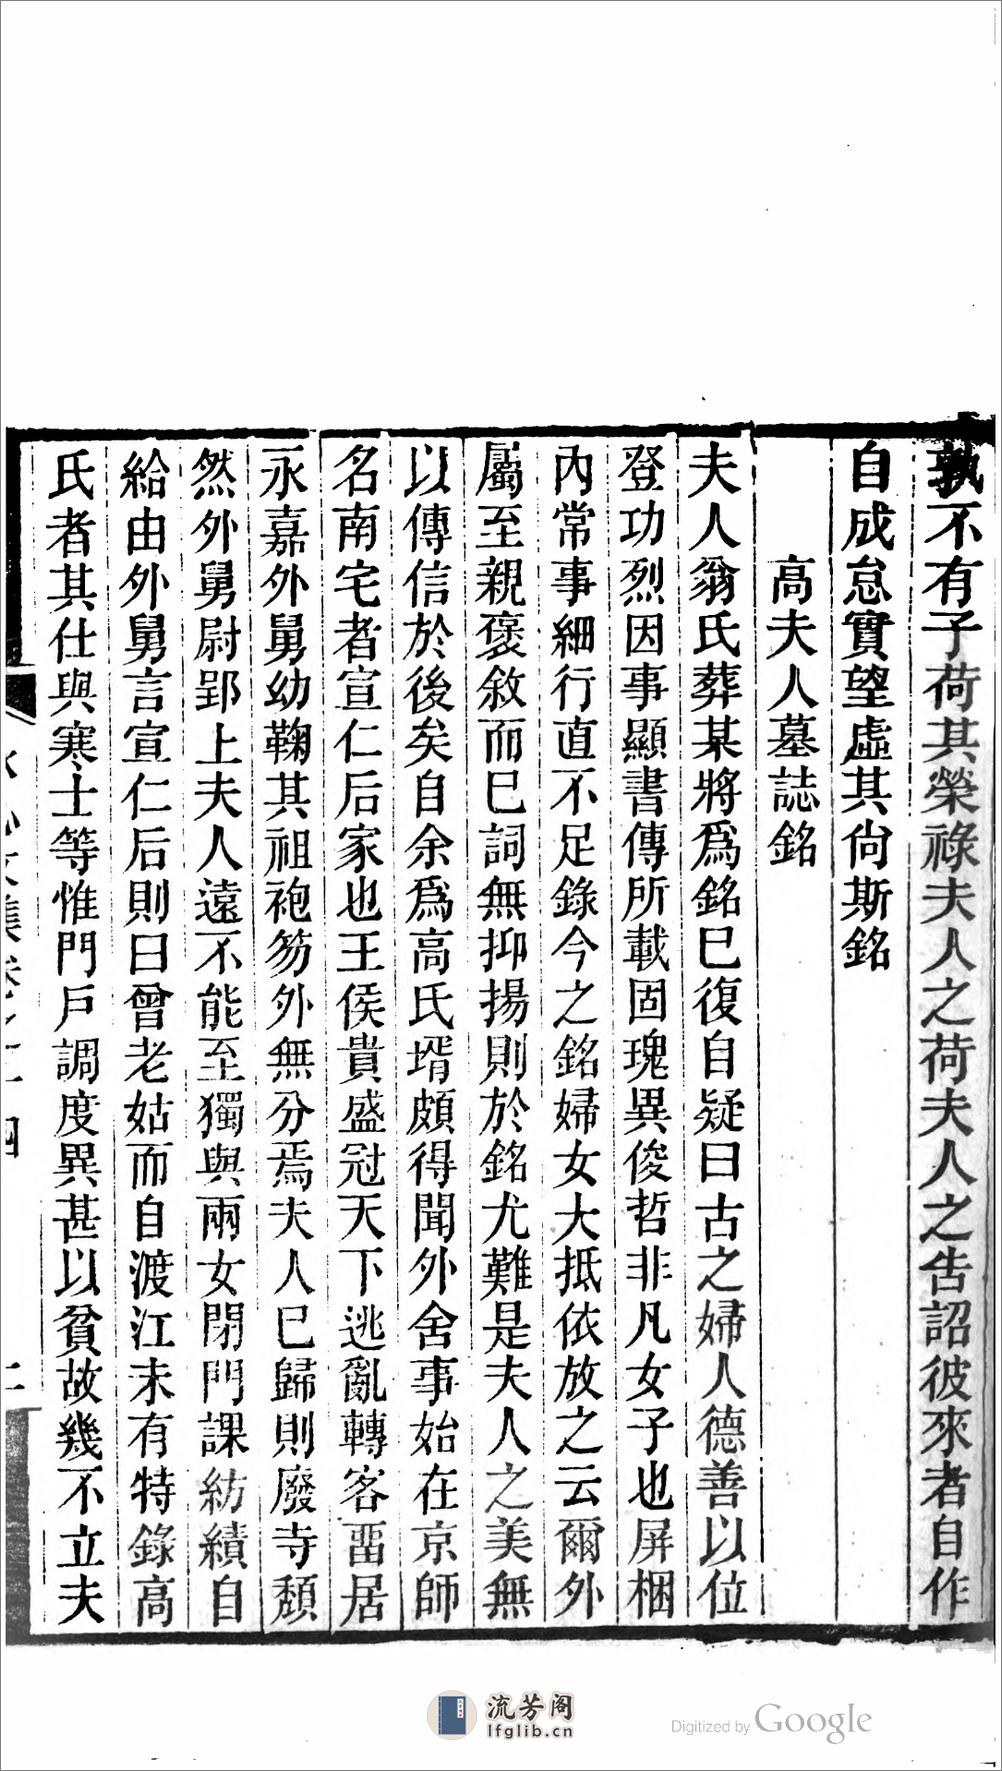 孰不有子荷其榮祿夫人之荷夫人之告詔彼來者自作
自成怠實望虛其尙斯銘
高夫人墓誌銘
夫人翁氏葬某將爲銘巳復自疑曰古之婦人德善以位
登功烈因事顯書傳所載固瑰異俊哲非凡女子也屏梱
內常事細行直不足錄今之銘婦女大抵依放之云爾外
屬至親褒敘而巳詞無抑揚則於銘尤難是夫人之美無
以傳信於後矣自余爲高氏壻頗得聞外舍事始在京師
名南宅者宣仁后家也王侯貴盛冠天下逃亂轉客畱居
永嘉外舅幼鞠其祖袍笏外無分焉夫人巳歸則廢寺頹
然外舅尉郢上夫人遠不能至獨與兩女閉門課紡績自
給由外舅言宣仁后則曰曾老姑而自渡江未有特錄高
氏者其仕與寒士等惟門戶調度異甚以貧故幾不立夫
流芳阁
lfglib.cn
Digitized by Google